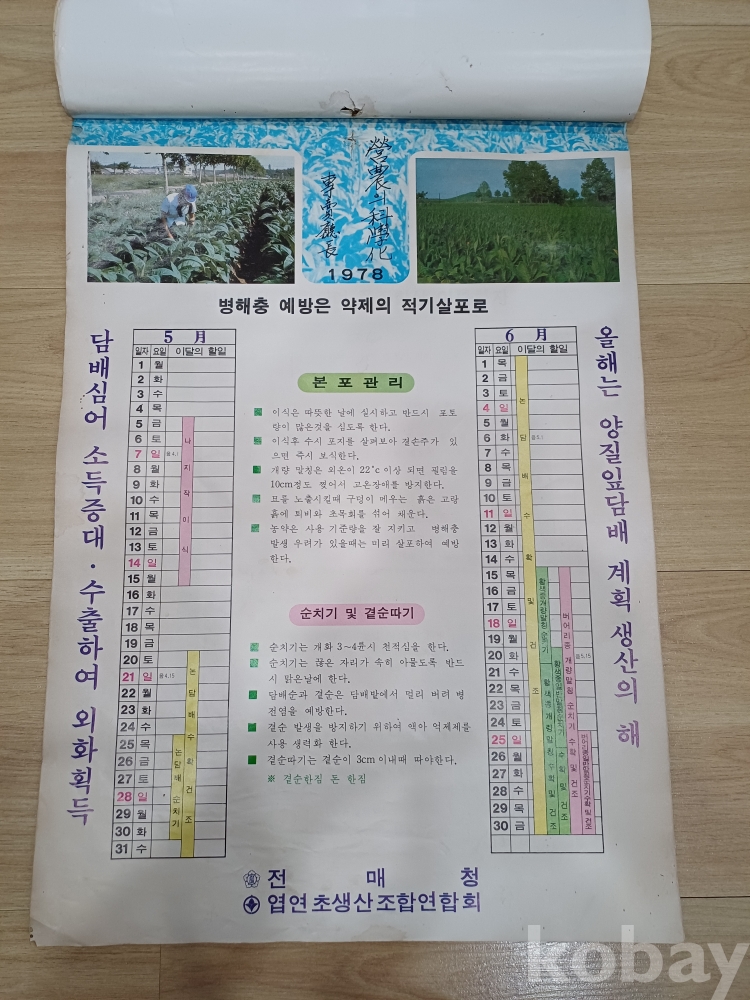 營農의 科學化
專賣廳長
1978
병해충 예방은 약제의 적기살포로
담배심어 소득증대 · 수출하여 외화획득
5 月
일자 요일 이달의 할일
1 월
2 화
3 수
4 목
5 금
6 토
7 일 음4.1
8 월
9 화
10 수
11 목
12 금
13 토
14 일
15 월
16 화
17 수
18 목
19 금
20 토
21 일 음4.15
22 월
23 화
24 수
25 목
26 금
27 토
28 일
29 월
30 화
31 수
나지작이식
농담배수확건조
농담배순치기
본포관리
이식은 따뜻한 날에 실시하고 반드시 포토
량이 많은것을 심도록 한다.
이식후 수시 포지를 살펴보아 결손주가 있
으면 즉시 보식한다.
개량 말칭은 외온이 22°c이상 되면 필림을
10cm정도 찢어서 고온장애를 방지한다.
묘를 노출시킬때 구덩이 메우는 흙은 고랑
흙에 퇴비와 초목회를 섞어 채운다.
농약은 사용 기준량을 잘 지키고 병해충
발생 우려가 있을때는 미리 살포하여 예방
한다.
순치기 및 곁순따기
순치기는 개화 3~4륜시 천적심을 한다.
순치기는 끊은 자리가 속히 아물도록 반드
시 맑은날에 한다.
담배순과 곁순은 담배밭에서 멀리 버려 병
전염을 예방한다.
곁순 발생을 방지하기 위하여 액아 억제제를
사용 생력화 한다.
곁순따기는 곁순이 3cm이내때 따야한다.
※ 곁순한짐 돈 한짐
6 月
일자 요일 이달의 할일
1 목
2 금
3 토
4 일
5 월
6 화 음5.1
7 수
8 목
9 금
10 토
11 일
12 월
13 화
14 수
15 목
16 금
17 토
18 일
19 월
20 화 음5.15
21 수
22 목
23 금
24 토
25 일
26 월
27 화
28 수
29 목
30 금
농담배수확및건조
황색종개량말칭순치기
황색종개량말칭수확및건조
버어리종개량말칭순치기수확및건조
올해는 양질잎담배 계획생산의 해
전매청
엽연초생산조합연합회
kobay